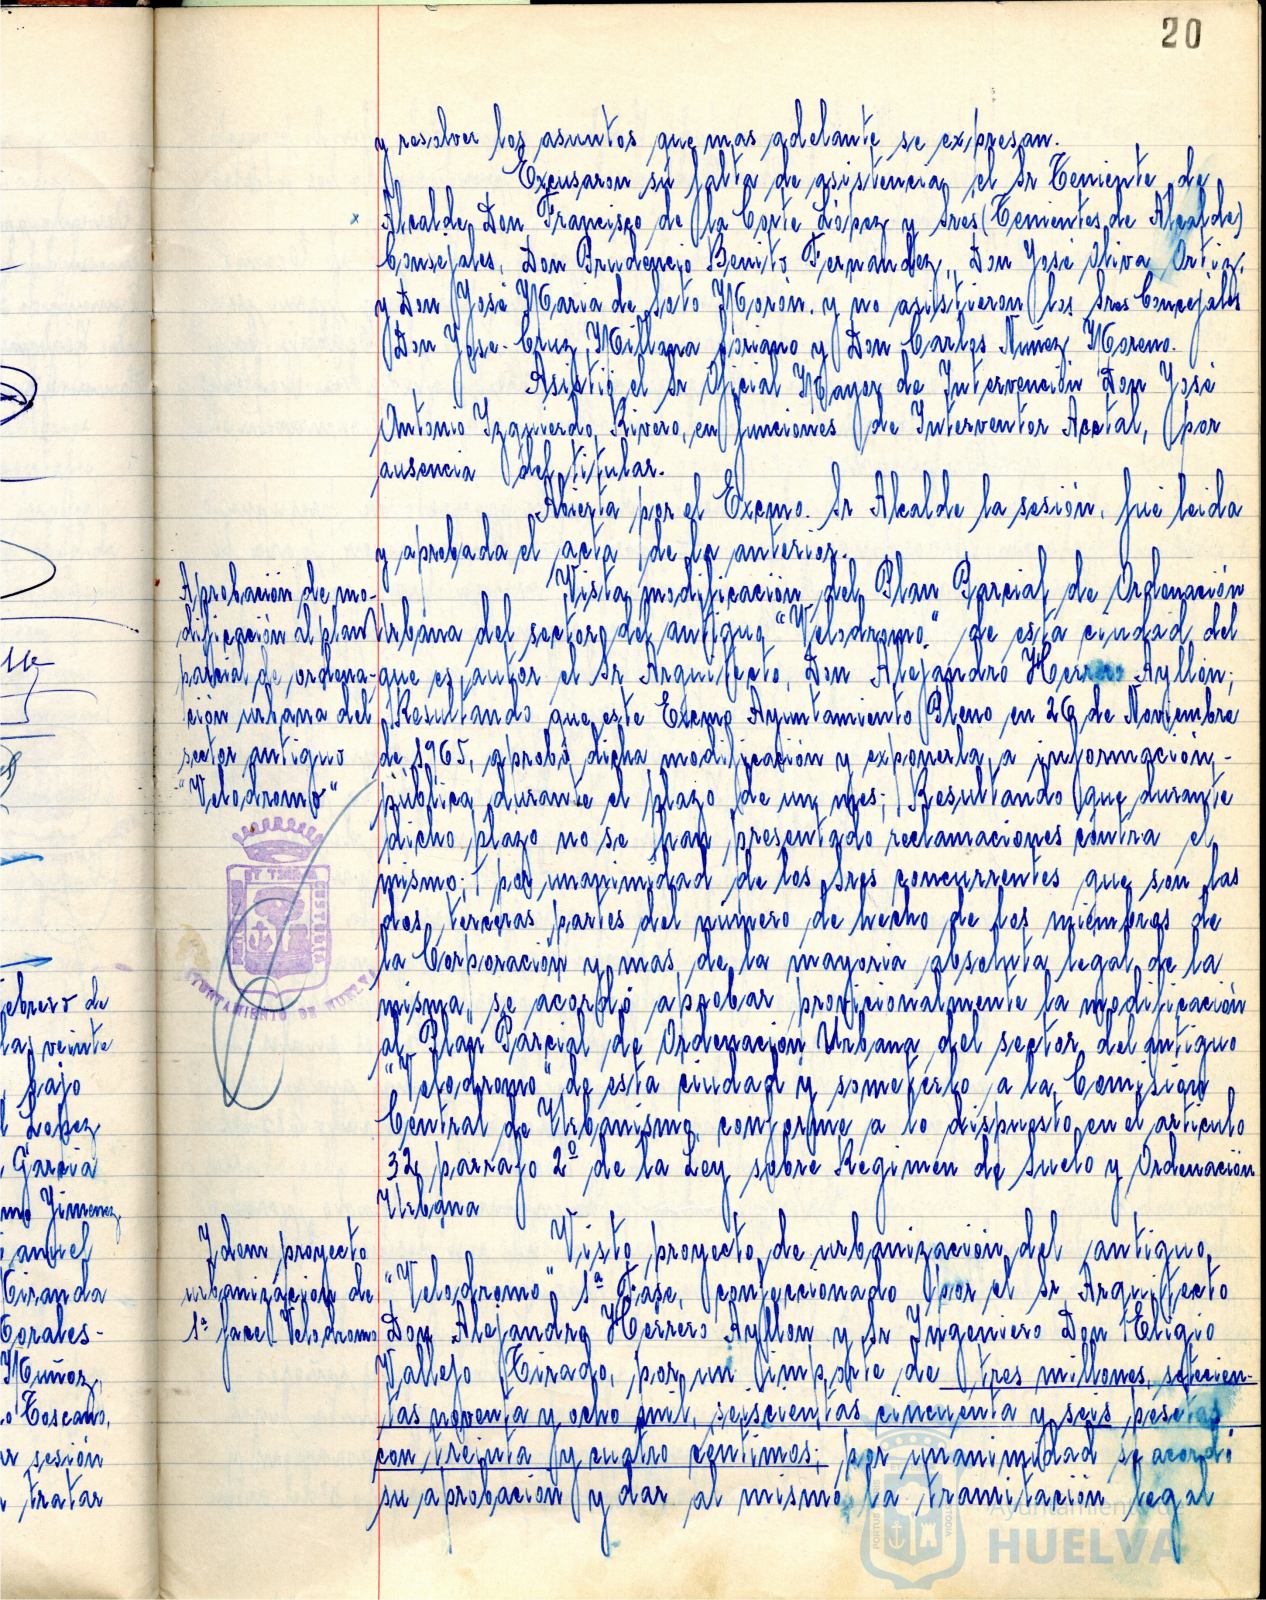 20
y resolver los asuntos que mas adelante se expresan.
Excusaron su falta de asistencia el Sr Teniente de
Alcalde Don Francisco de la Corte López y Sres (Tenientes de Alcalde)
Consejales, Don Prudencio Benito Fernandez, Don José Oliva Ortiz,
y Don José Maria de Soto Morón. y no asistieron los Sres Concejales
Don Jose-Cruz Millana Soriano y Don Carlos Nuñez Moreno.
Asistió el Sr Oficial Mayor de Intervención Don José
Antonio Izquierdo Rivero, en funciones de Interventor Acctal, por
ausencia del titular.
Abierta por el Excmo. Sr Alcalde la sesión, fué leida
y aprobada el acta de la anterior.
Aprobación de mo-
dificación al plan
parcial de ordena-
ción urbana del
sector antiguo
"Velodromo"
Vista modificación del Plan Parcial de Ordenación
Urbana del sector del antiguo "Velodromo" de esta ciudad, del
que es autor el Sr Arquitecto, Don Alejandro Herrero Ayllón;
Resultando que este Excmo Ayuntamiento Pleno en 26 de Noviembre
de 1965, aprobó dicha modificación y exponerla a información-
pública durante el plazo de un mes; Resultando que durante
dicho plazo no se han presentado reclamaciones contra el
mismo; por unanimidad de los Sres concurrentes que son las
dos terceras partes del número de hecho de los miembros de
la Corporación y mas de la mayoria absoluta legal de la
misma, se acordó aprobar provicionalmente la modificación
al Plan Parcial de Ordenación Urbana del sector del antiguo
"Velodromo" de esta ciudad y someterlo a la Comisión
Central de Urbanismo, conforme a lo dispuesto en el articulo
32, parrafo 2º de la Ley sobre Regimen de Suelo y Ordenación
Urbana
AYUNTAMIENTO DE HUELVA
Idem proyecto
urbanización de
1ª face Velodromo
Visto proyecto de urbanización del antiguo
"Velodromo", 1ª Fase, confeccionado por el Sr Arquitecto
Don Alejandro Herrero Ayllon y Sr Ingeniero Don Eligio
Vallejo Tirado, por un importe de tres millones, setecien-
tas noventa y ocho mil, seiscientas cincuenta y seis pesetas
con treinta y cuatro centimos; por unanimidad se acordó
su aprobación y dar al mismo la tramitación legal
ebrero de
las veinte
bajo
Lopez
Garcia
mo Jimenez
anuel
Tiranda
Corales-
Muñoz,
o Toscano,
sesión
tratar
Ayuntamiento de
HUELVA